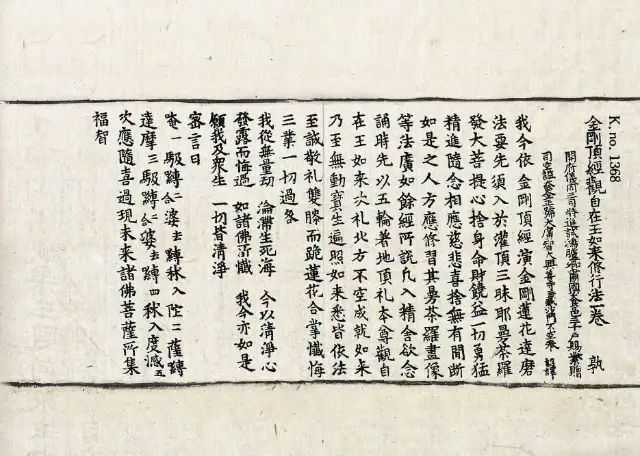 K. no. 1368
金剛頂經觀自在王如来修行法一卷 孰
開府儀同三司特進試鴻臚卿肅國公食邑三千戶賜紫贈
司空謚大鑒正號大廣智大興善寺三藏沙門不空奉 詔譯
我今依金剛頂經演金剛蓮花達磨
法要先須入於灌頂三昧耶曼荼羅
發大菩提心捨身命財饒益一切勇猛
精進隨念相應慈悲喜捨無有間断
如是之人方應修習其曼荼羅畫像
等法廣如餘經所説凡入精舍欲念
誦時先以五輪著地頂礼本尊觀自
在王如来次礼北方不空成就如来
乃至無動寶生遍照如来悉皆依法
至誠敬礼雙膝而跪蓮花合掌懺悔
三業一切過咎
我從無量劫 淪滯生死海 今以清淨心
發露而悔過 如諸佛所懺 我今亦如是
願我及衆生 一切皆清淨
密言曰
唵一馺嚩二合婆去嚩秫入陛二薩嚩
達摩三馺嚩二合婆去嚩四秫入度憾五
次應隨喜過現未来諸佛菩薩所集
福智